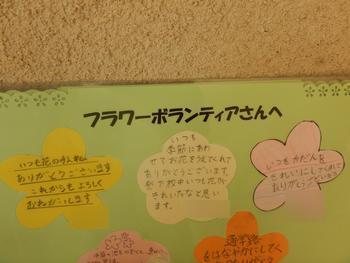 フラワーボランティアさんへ
いつも花の手入れ
ありがとうございます
これからもよろしく
おねがいします
いつも
季節にあわ
せてお花を植えてくれて
ありがとうございます。
登下校中いつも花が
きれいだなと思い
ます。
いつもかだんを
きれいにしてくれて
ありがとうございます
通学路
をはなやかにしてく